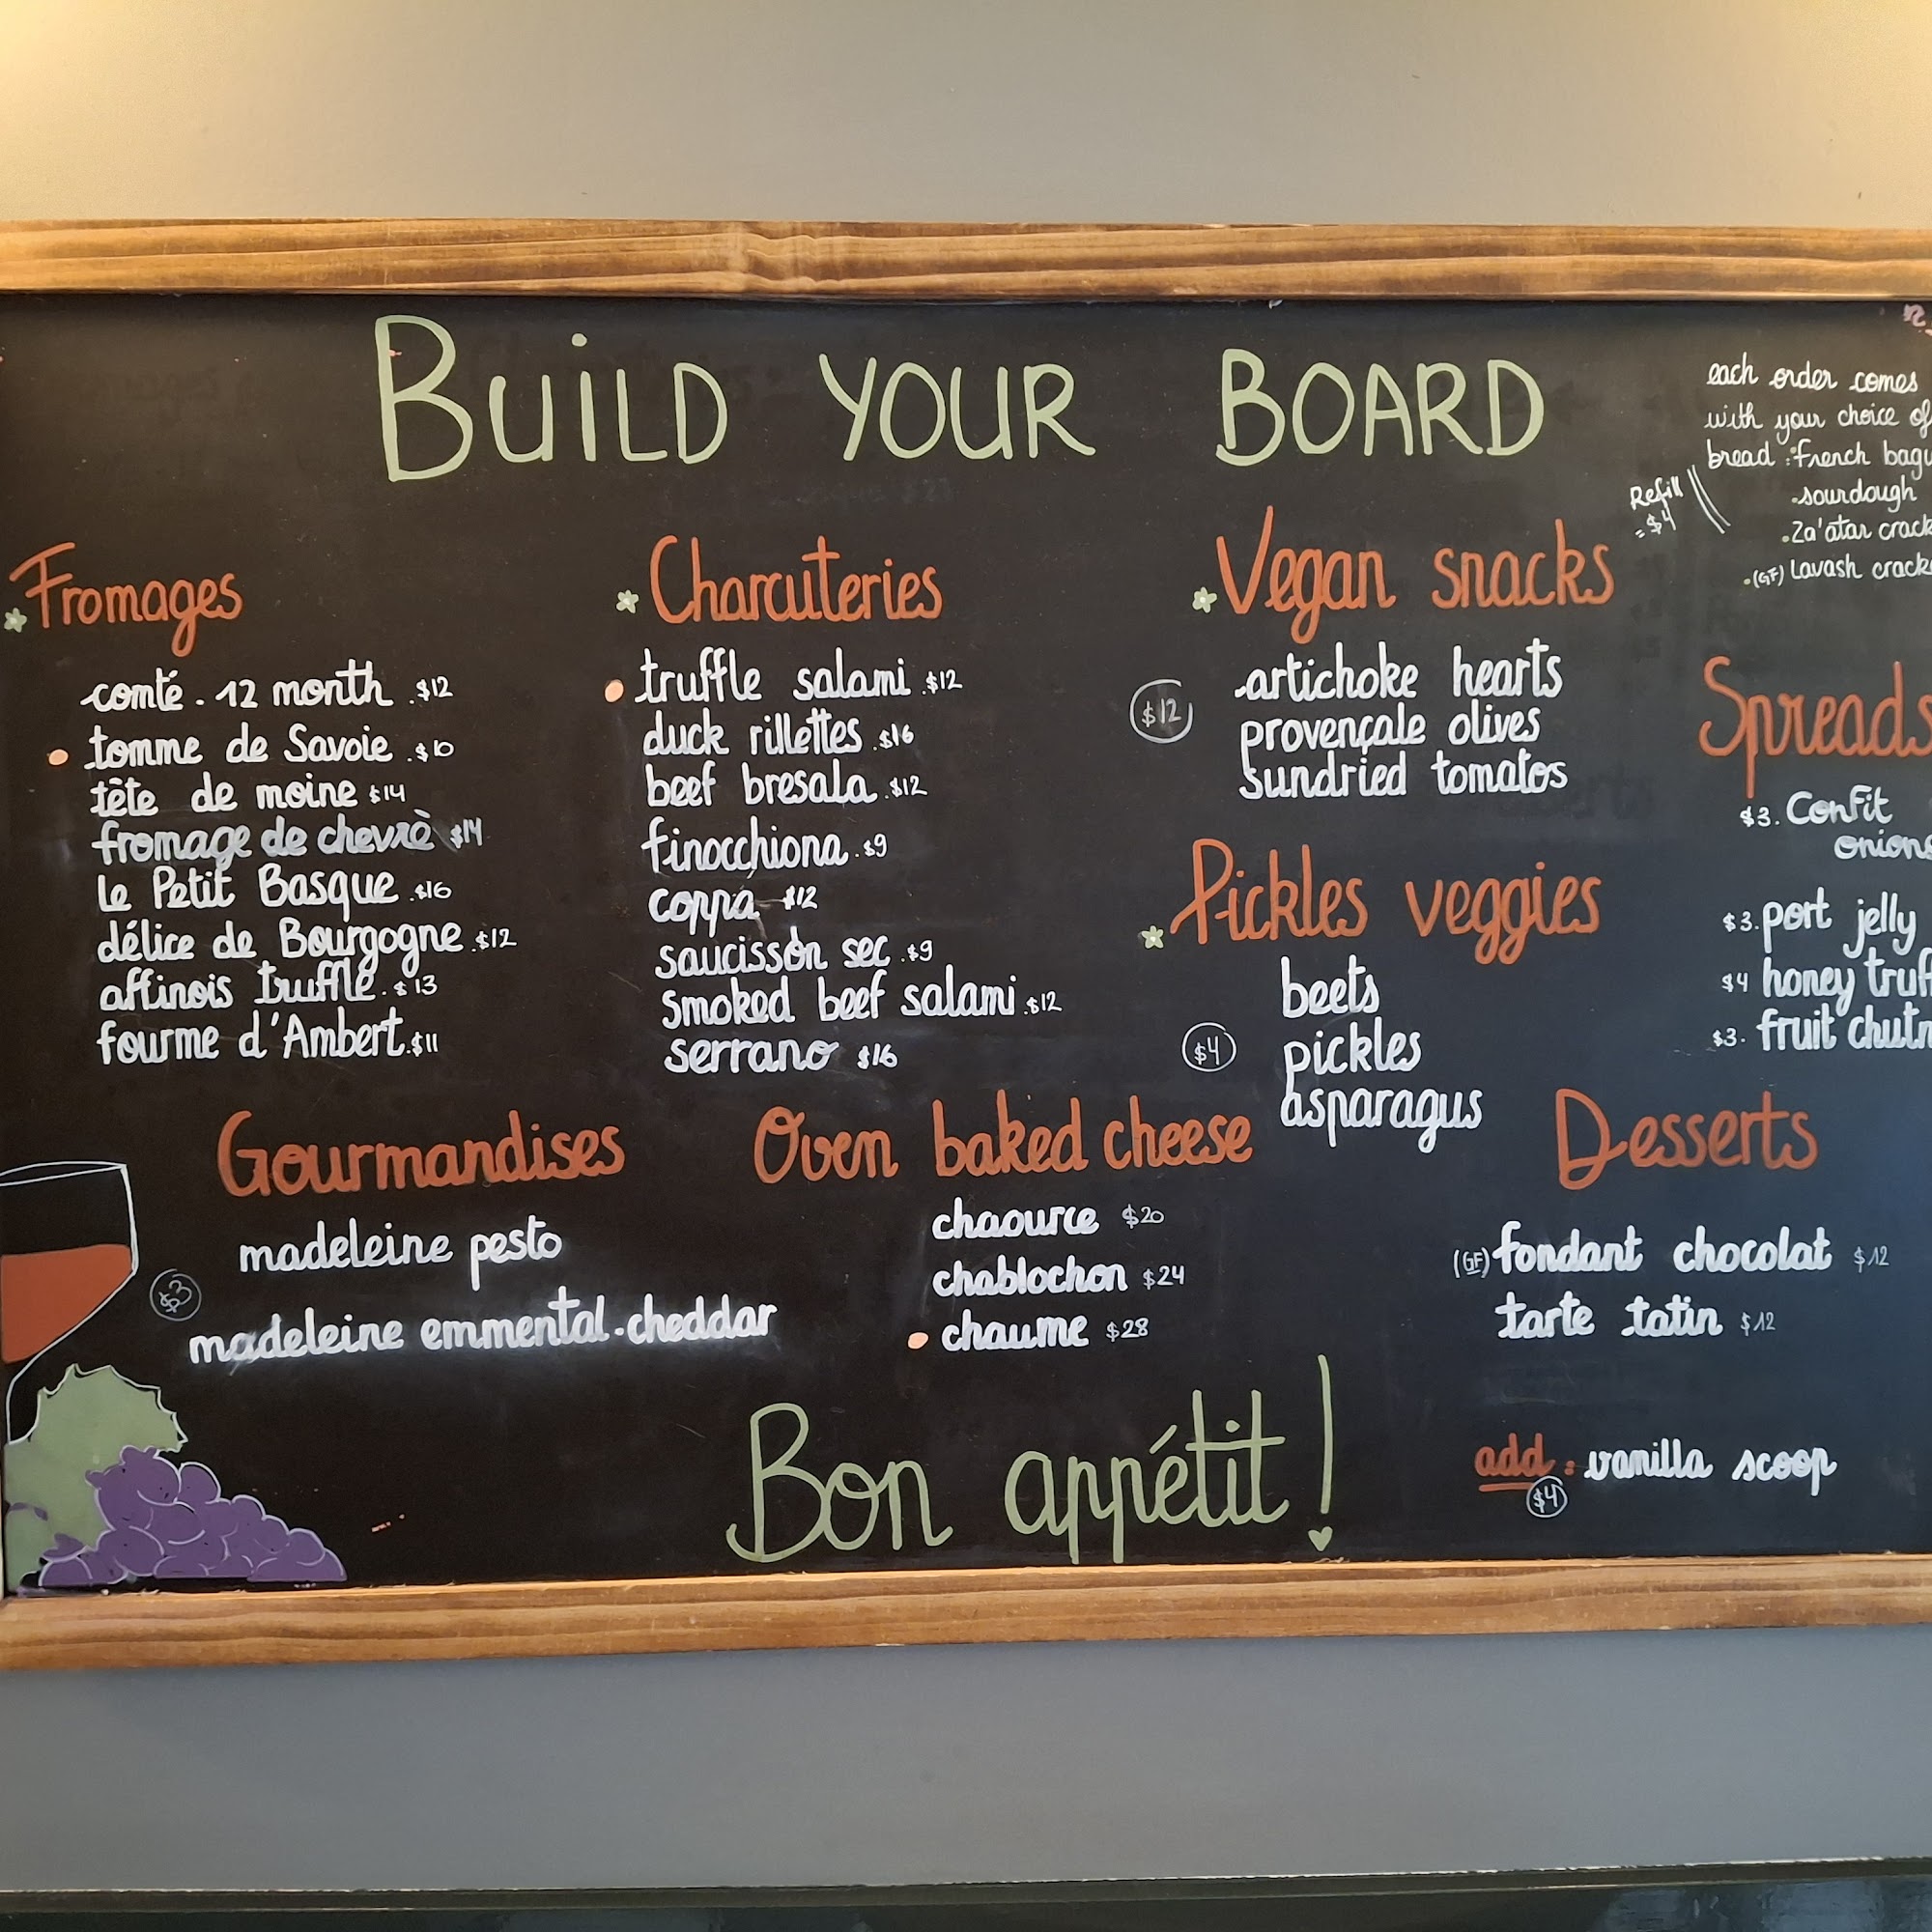 BuiLD YOUR BOARD
each order comes
with your choice of
bread : French bagu
Refill
= $4
.sourdough
.Za'atar crack
.(GF) Lavash crack
Fromages
comté . 12 month .$12
tomme de Savoie .$10
tête de moine $14
fromage de chevrè $14
le Petit Basque .$16
délice de Bourgogne .$12
affinois truffle . $13
fourme d'Ambert.$11
Charcuteries
truffle salami .$12
duck rillettes .$16
beef bresala .$12
finocchiona .$9
coppa $12
saucisson sec .$9
smoked beef salami .$12
serrano $16
Vegan snacks
$12
artichoke hearts
provençale olives
sundried tomatos
Pickles veggies
$4
beets
pickles
asparagus
Spreads
$3. Confit
onions
$3. port jelly
$4 honey truff
$3. fruit chutn
Gourmandises
$3
madeleine pesto
madeleine emmental.cheddar
Oven baked cheese
chaource $20
chablochon $24
chaume $28
Desserts
(GF) fondant chocolat $12
tarte tatin $12
add : vanilla scoop
$4
Bon appétit !